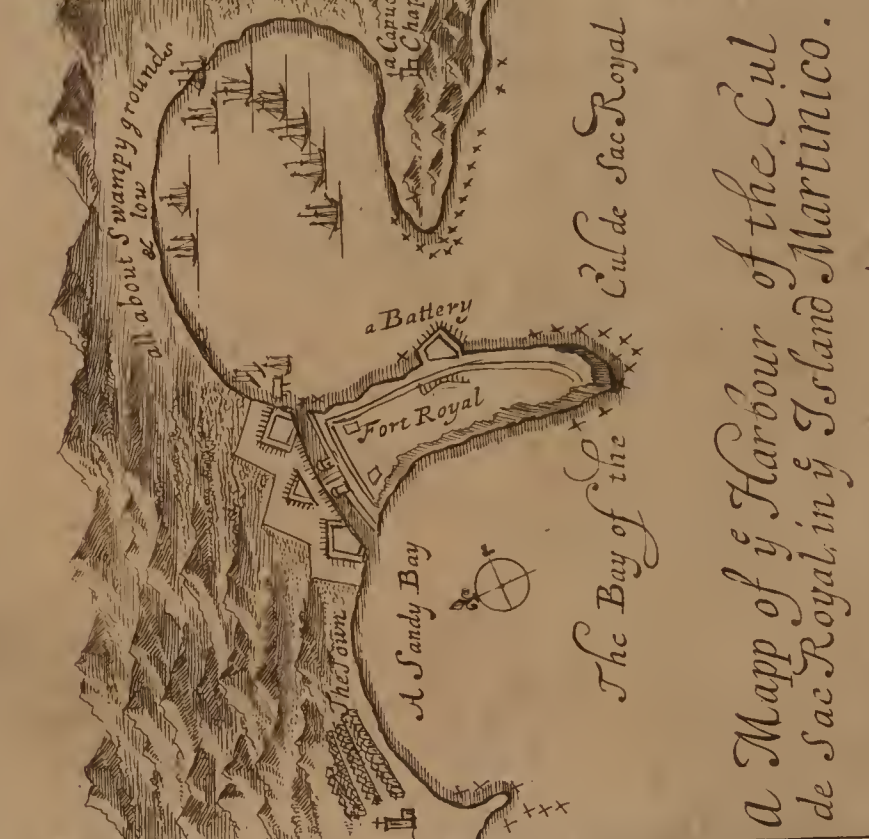 all about Swampy grounds
& low
a Capuc
in Chap
a Battery
Fort Royal
The Town
A Sandy Bay
The Bay of the Cul de Sac Royal
a Mapp of yͤ Harbour of the Cul
de Sac Royal, in yͤ Island Martinico.